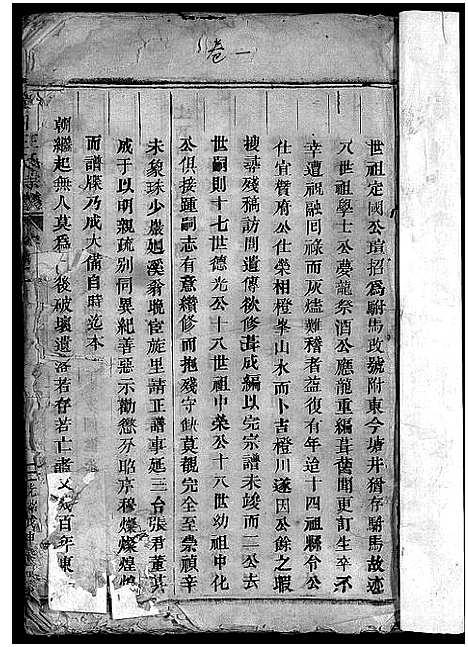 卷一
世祖定國公瓊招為駙馬改號附東今塘井猶存駙馬故迹
八世祖學士公夢龍祭酒公應龍重編葺舊聞更訂生卒不
幸遭祝融回祿而灰燼難稽者益復有年迨十四祖縣令公
仕宜賓府公仕榮相橙峯山水而卜吉橙川遂因公餘之暇
搜尋殘稿訪問遺傳欲修葺成編以完宗譜未竣而二公去
世嗣則十七世德光公十八世祖中榮公十八世幼祖中化
公俱接踵嗣志有意纘修而抱殘守缺莫觀完全至崇禎辛
未象珠少巖廻溪翁晚宦旋里請正譜事延三台張君董其
成于以明親疏別同異紀善惡示勸懲分昭序穆燦燦煌煌
而譜牒乃成大備自時迄本
朝繼起無人莫為 後破壞遺落若存若亡者又幾百年東